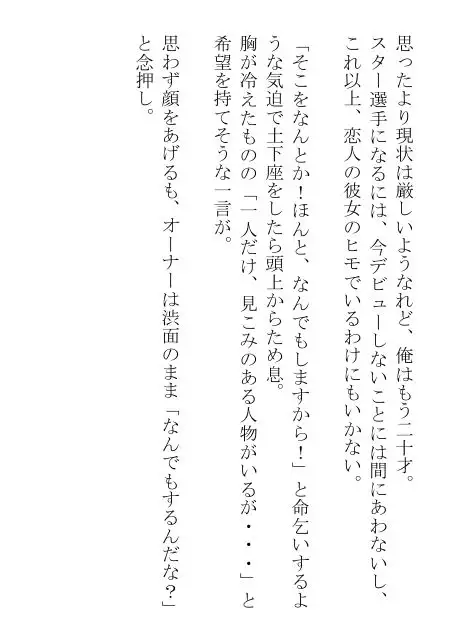 思ったより現状は厳しいようなれど、俺はもう二十才。
スター選手になるには、今デビューしないことには間にあわないし、
これ以上、恋人の彼女のヒモでいるわけにもいかない。
「そこをなんとか！ほんと、なんでもしますから！」と命乞いするよ
うな気迫で土下座をしたら頭上からため息。
胸が冷えたものの「一人だけ、見こみのある人物がいるが・・・」と
希望を持てそうな一言が。
思わず顔をあげるも、オーナーは渋面のまま「なんでもするんだな？」
と念押し。